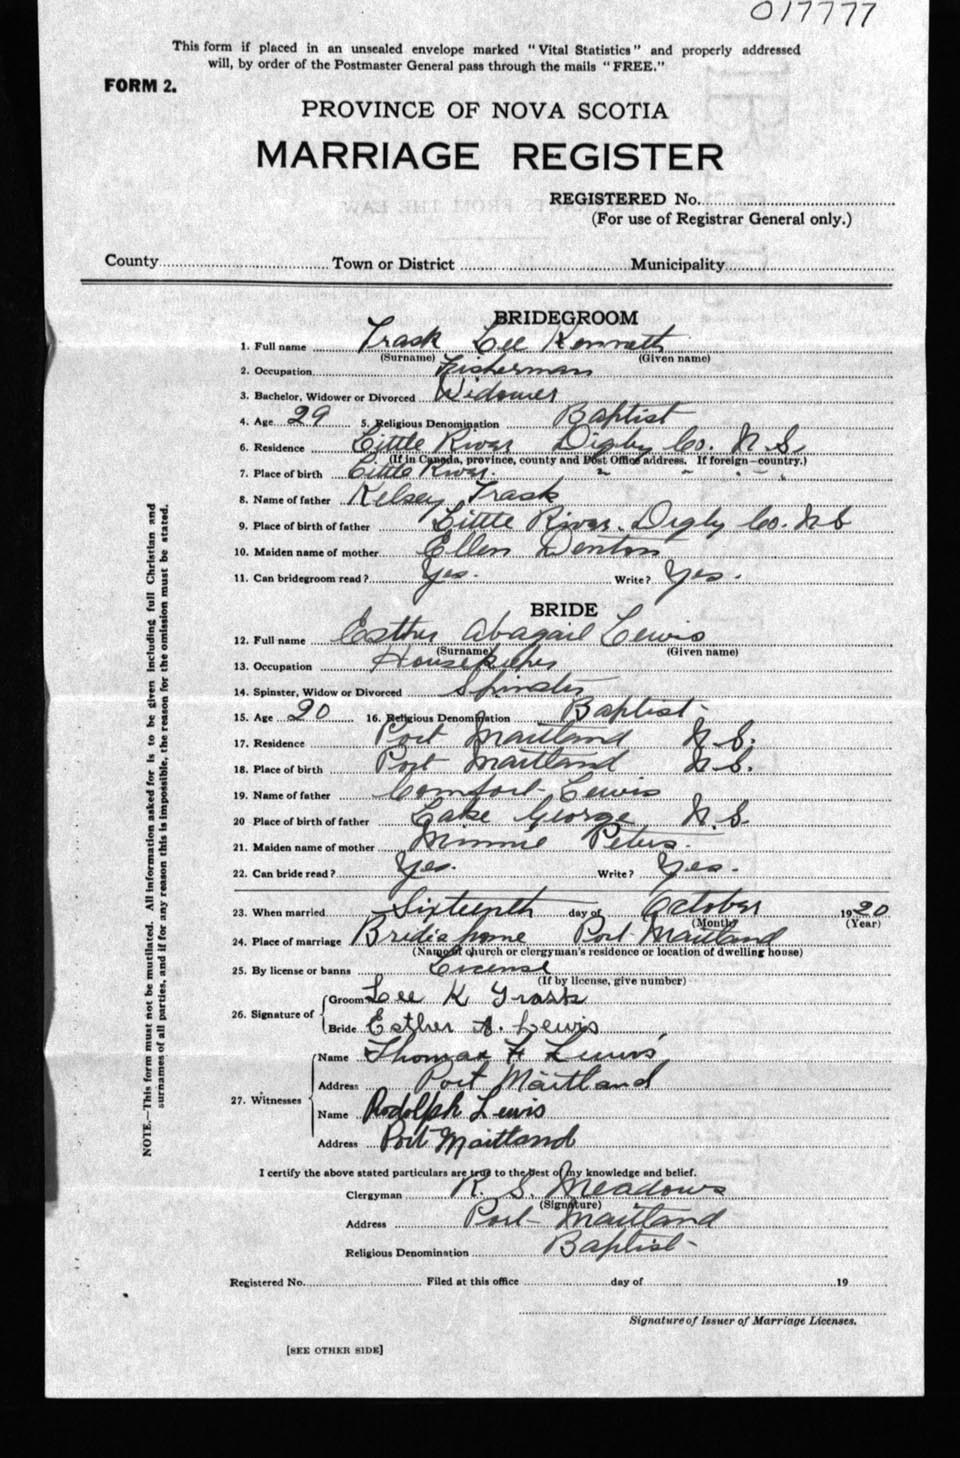 017777
This form if placed in an unsealed envelope marked "Vital Statistics" and properly addressed
will, by order of the Postmaster General pass through the mails "FREE."
FORM 2.
PROVINCE OF NOVA SCOTIA
MARRIAGE REGISTER
REGISTERED No.
(For use of Registrar General only.)
County Town or District Municipality
BRIDEGROOM
1. Full name Trask Lee Kenneth
(Surname) (Given name)
2. Occupation Fisherman
3. Bachelor, Widower or Divorced Widower
4. Age 29 5. Religious Denomination Baptist
6. Residence Little River Digby Co. N S
(If in Canada, province, county and Post Office address. If foreign—country.)
7. Place of birth Little River. " " " "
8. Name of father Kelsey Trask
9. Place of birth of father Little River. Digby Co. N S
10. Maiden name of mother Ellen Denton
11. Can bridegroom read? Yes. Write? Yes.
BRIDE
12. Full name Esther Abagail Lewis
(Surname) (Given name)
13. Occupation Housekeeper
14. Spinster, Widow or Divorced Spinster
15. Age 20 16. Religious Denomination Baptist
17. Residence Port Maitland N. S.
18. Place of birth Port Maitland N. S.
19. Name of father Comfort Lewis
20 Place of birth of father Lake George N. S.
21. Maiden name of mother Minnie Peters.
22. Can bride read? Yes. Write? Yes.
23. When married Sixteenth day of October 1920
(Month) (Year)
24. Place of marriage Brides home Port Maitland
(Name of church or clergyman's residence or location of dwelling house)
25. By license or banns License
(If by license, give number)
26. Signature of Groom Lee K Trask
Bride Esther A. Lewis
27. Witnesses Name Thomas H Lewis
Address Port Maitland
Name Rodolph Lewis
Address Port Maitland
I certify the above stated particulars are true to the best of my knowledge and belief.
Clergyman R. S. Meadows
(Signature)
Address Port Maitland
Religious Denomination Baptist
Registered No. Filed at this office day of 19
Signature of Issuer of Marriage Licenses.
[SEE OTHER SIDE]
NOTE.—This form must not be mutilated. All information asked for is to be given including full Christian and
surnames of all parties, and if for any reason this is impossible, the reason for the omission must be stated.